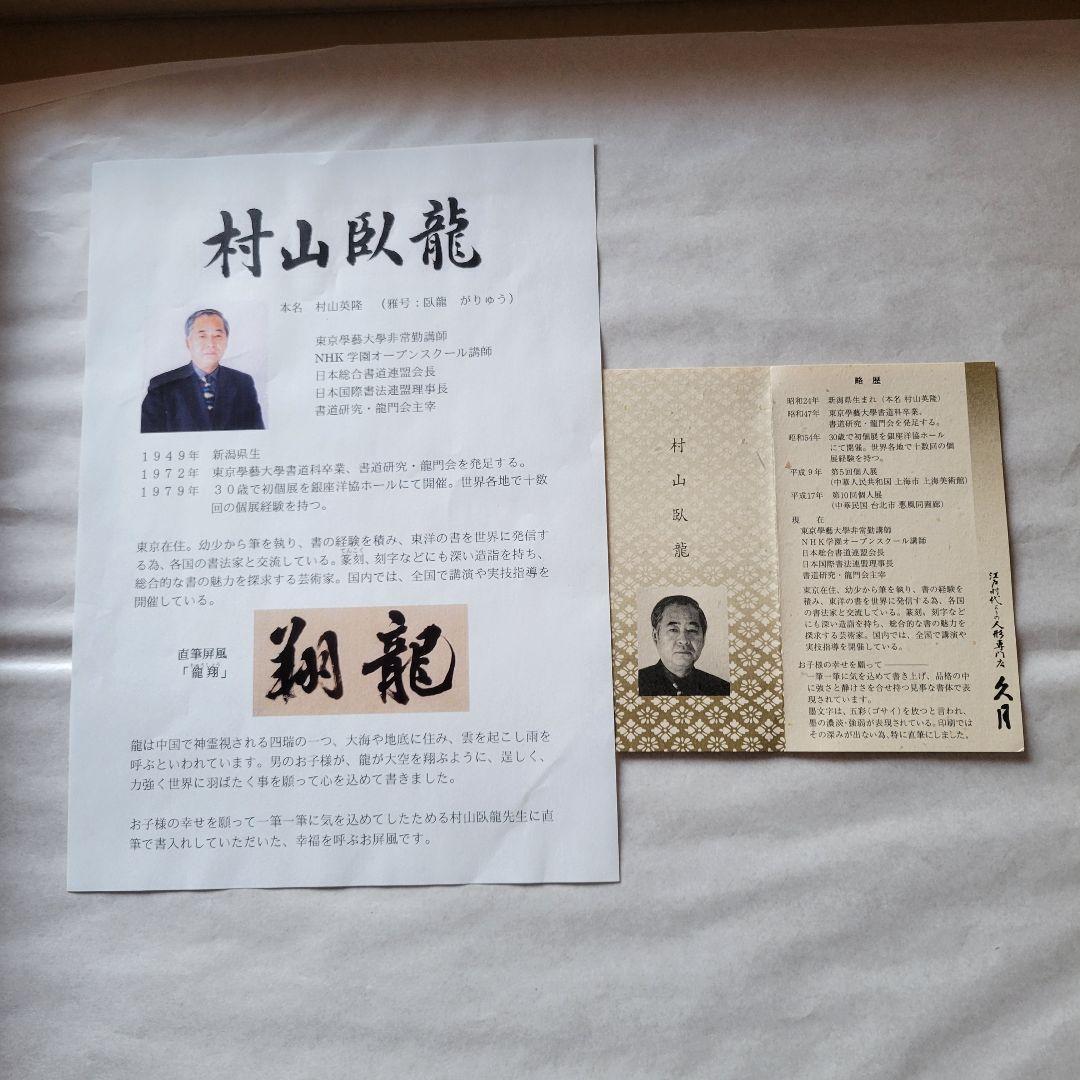 村山臥龍
本名　村山英隆　（雅号：臥龍　がりゅう）
東京學藝大學非常勤講師
NHK 学園オープンスクール講師
日本総合書道連盟会長
日本国際書法連盟理事長
書道研究・龍門会主宰
１９４９年　新潟県生
１９７２年　東京學藝大學書道科卒業、書道研究・龍門会を発足する。
１９７９年　３０歳で初個展を銀座洋協ホールにて開催。世界各地で十数
回の個展経験を持つ。
東京在住。幼少から筆を執り、書の経験を積み、東洋の書を世界に発信す
る為、各国の書法家と交流している。篆刻、刻字などにも深い造詣を持ち、
てんこく
総合的な書の魅力を探求する芸術家。国内では、全国で講演や実技指導を
開催している。
直筆屏風
「龍翔」
翔龍
龍は中国で神霊視される四瑞の一つ、大海や地底に住み、雲を起こし雨を
呼ぶといわれています。男のお子様が、龍が大空を翔ぶように、逞しく、
力強く世界に羽ばたく事を願って心を込めて書きました。
お子様の幸せを願って一筆一筆に気を込めてしたためる村山臥龍先生に直
筆で書入れしていただいた、幸福を呼ぶお屏風です。
村山臥龍
略歴
昭和24年　新潟県生まれ（本名 村山英隆）
昭和47年　東京學藝大學書道科卒業、
書道研究・龍門会を発足する。
昭和54年　30歳で初個展を銀座洋協ホール
にて開催。世界各地で十数回の個
展経験を持つ。
平成９年　第5回個人展
（中華人民共和国 上海市 上海美術館）
平成17年　第10回個人展
（中華民国 台北市 恵風同画廊）
現　在
東京學藝大學非常勤講師
ＮＨＫ学園オープンスクール講師
日本総合書道連盟会長
日本国際書法連盟理事長
書道研究・龍門会主宰
東京在住、幼少から筆を執り、書の経験を
積み、東洋の書を世界に発信する為、各国
の書法家と交流している。篆刻、刻字など
にも深い造詣を持ち、総合的な書の魅力を
探求する芸術家。国内では、全国で講演や
実技指導を開催している。
お子様の幸せを願って
一筆一筆に気を込めて書き上げ、品格の中
に強さと静けさを合せ持つ見事な書体で表
現されています。
墨文字は、五彩（ゴサイ）を放つと言われ、
墨の濃淡・強弱が表現されている。印刷では
その深みが出ない為、特に直筆にしました。
江戸時代よりの人形専門店
久月